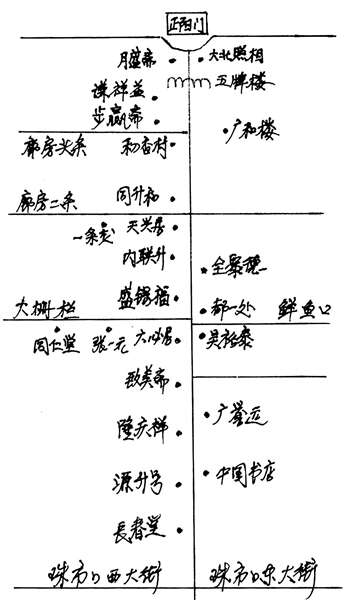 正阳门
月盛斋 大北照相
谦祥益 五牌楼
步瀛斋
广和楼
廊房头条 稻香村
廊房二条 同升和
一条龙 天兴居
内联升 全聚德
大栅栏 盛锡福 都一处 鲜鱼口
同仁堂 张一元 六必居 吴裕泰
致美斋
隆庆祥 广誉远
源升号 中国书店
長春堂
珠市口西大街 珠市口东大街